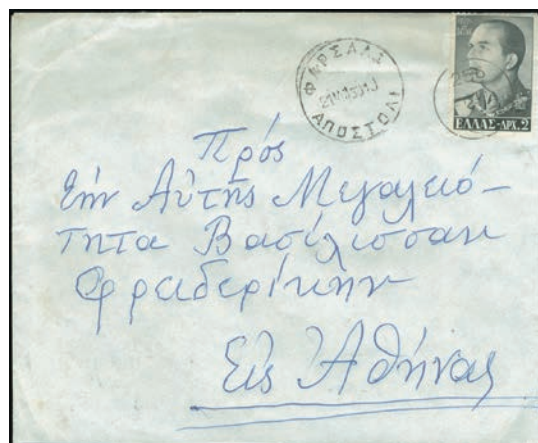 ΦΑΡΣΑΛΑ
ΑΠΟΣΤΟΛΙ
ΕΛΛΑΣ-ΔΡΧ.2
Πρός
τήν Αὐτῆς Μεγαλειό-
τητα Βασίλισσαν
Φρειδερίκην
Εἰς Ἀθήνας